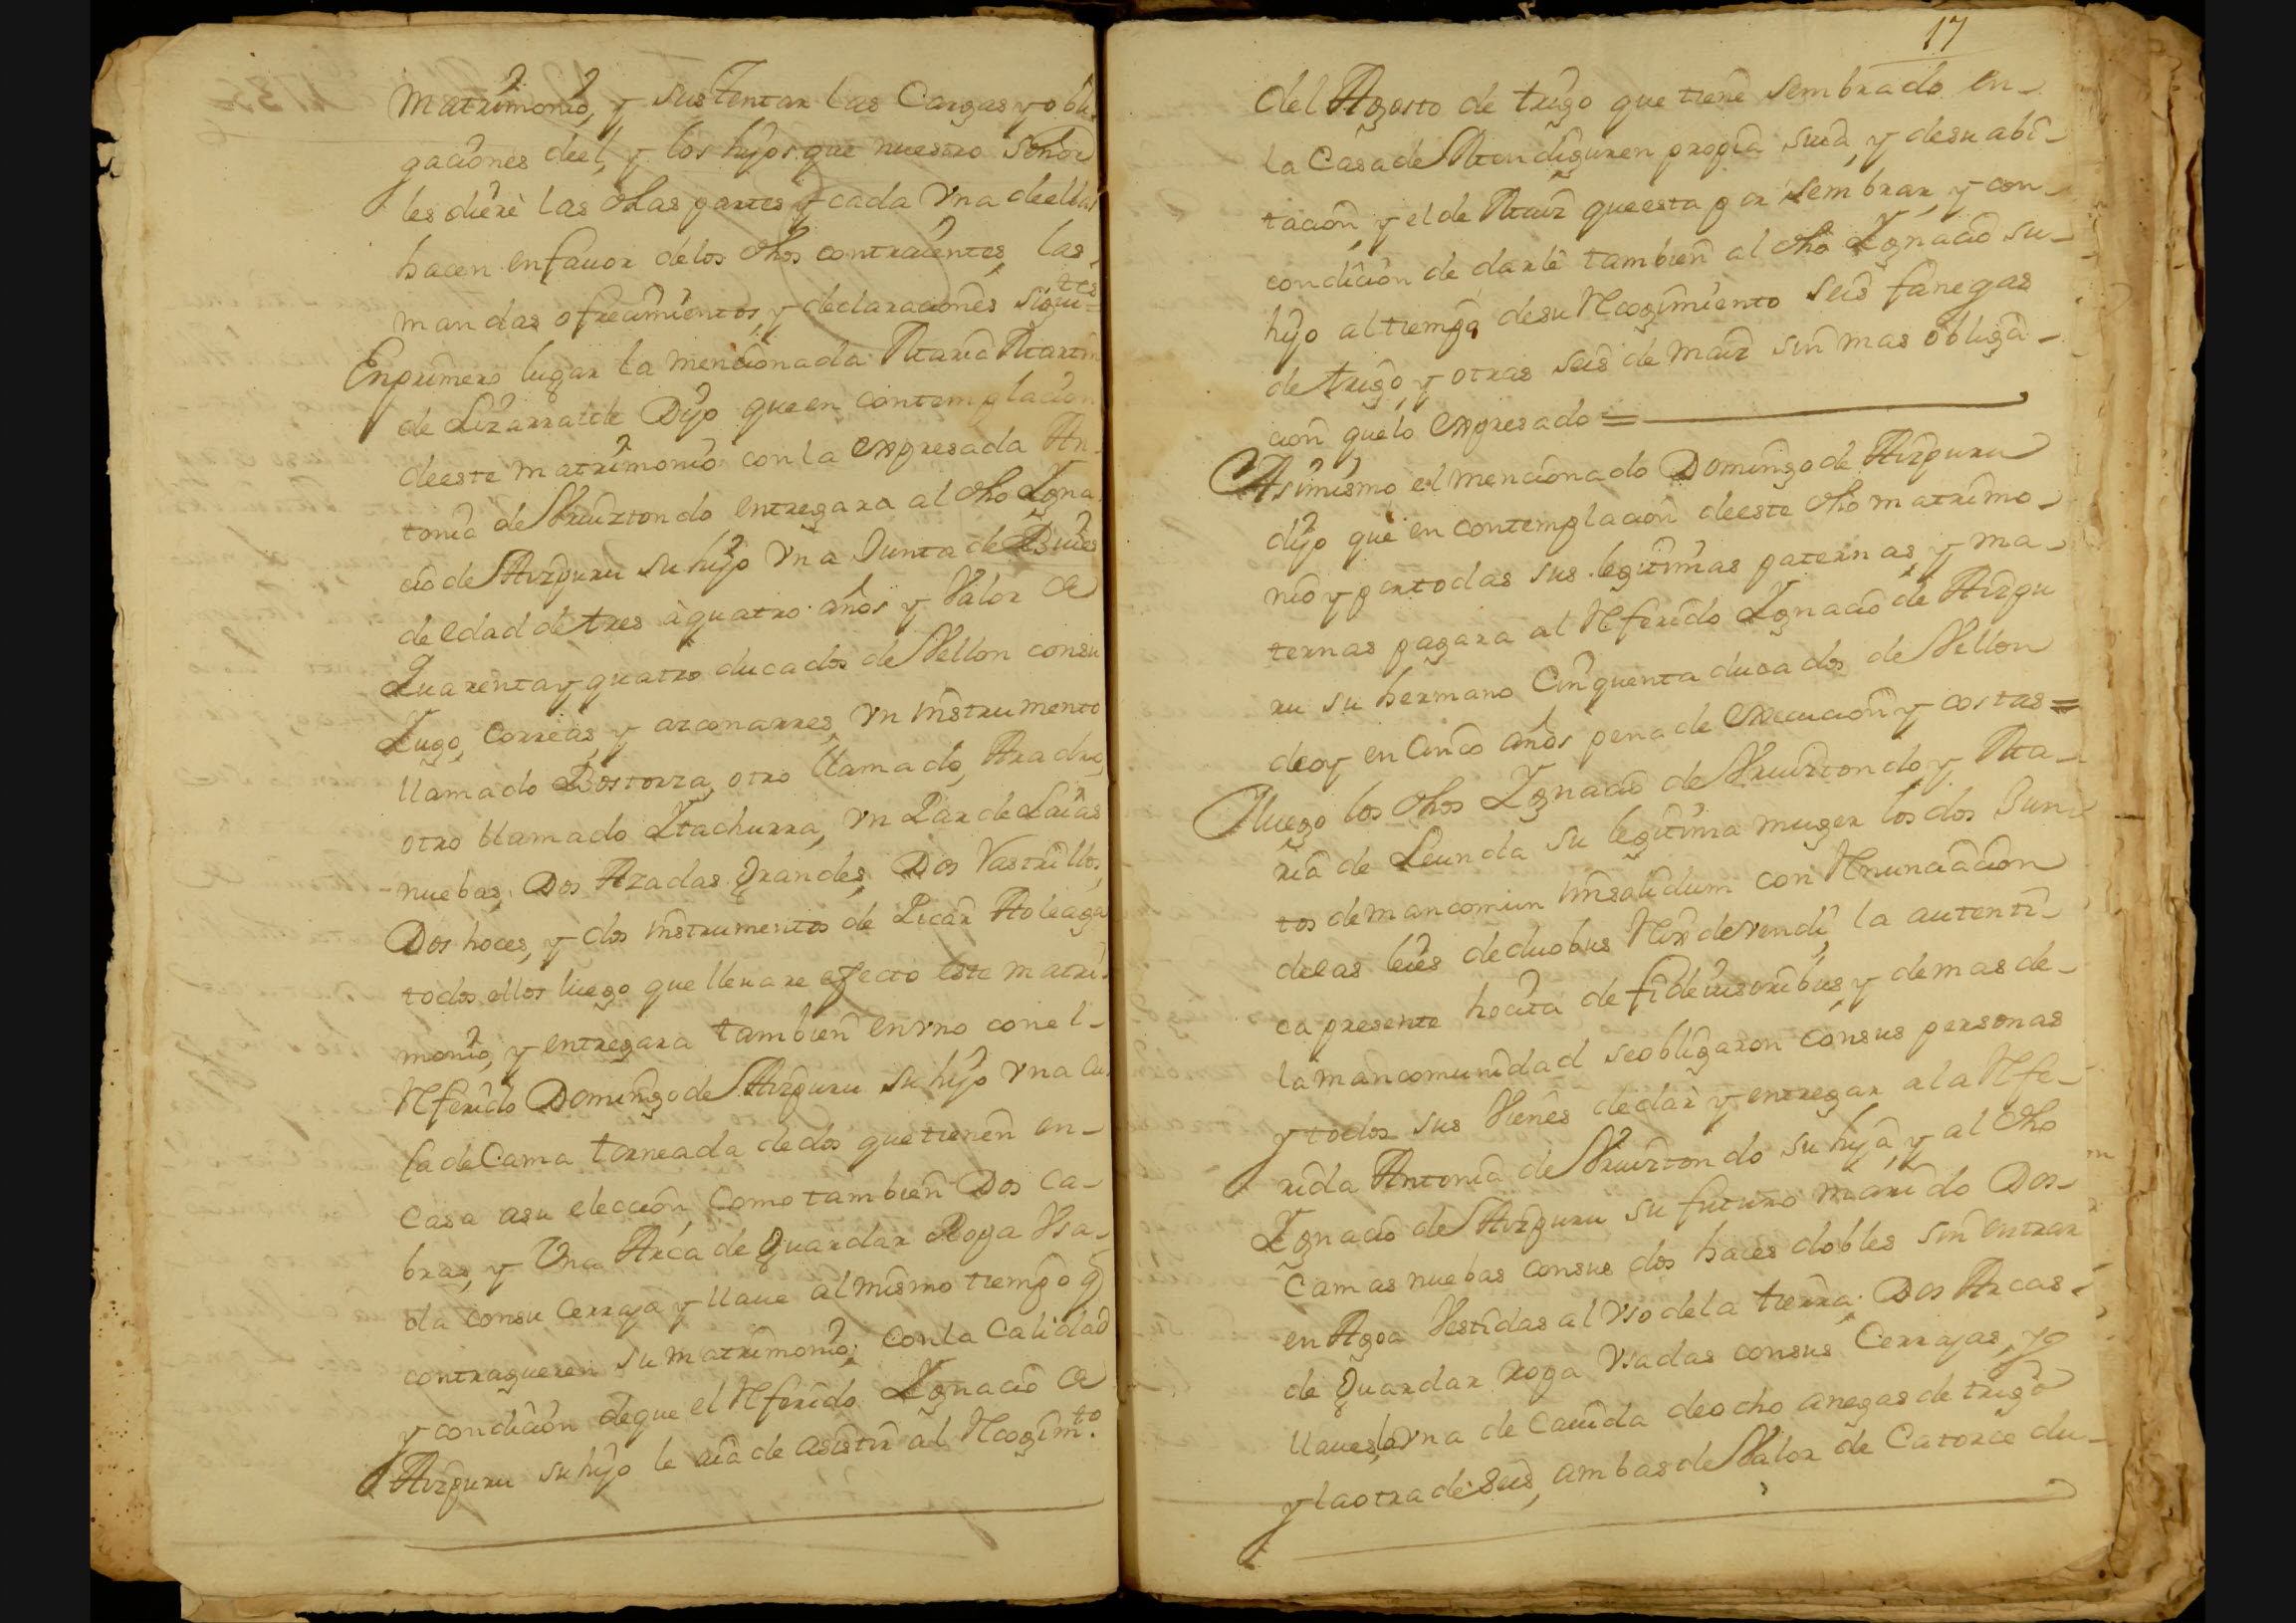 Matrimonio, y sustentar las Cargas y obli-
gaciones deel, y los hijos que nuestro Señor
les diere las dhas partes y cada Vna deellas
hacen enfauor delos dhos contraientes, las
mandas ofrecimientos, y declaraciones siguientes=
Enprimero lugar la mencionada Maria Martin
de Lizarralde Dijo que en contemplacion
deeste matrimonio con la expresada An-
tonia de Vruiztondo entregara al dho Igna
cio de Aizpuru su hijo Vna Junta de Buies
de edad de tres à quatro años y Valor de
Quarenta y quatro ducados de Vellon consu
Iugo, Correas, y arconarres, vn instrumento
llamado Bostorza, otro llamado, Aradru,
otro llamado Itachurra, vn Par de Laias
nuebas, Dos Azadas Grandes, Dos Vastrillos,
Dos hoces, y dos instrumentos de Picar Aoleaga
todos ellos luego que lleuare efecto este matri-
monio, y entregara tambien envno conel-
Referido Domingo de Aizpuru su hijo Vna Cu-
la de Cama torneada de dos que tienen en-
Casa asu eleccion, Como tambien Dos Ca-
bras, y Vna Arca de Guardar Ropa Vsa-
da consu Cerraja y llaue al mismo tiempo q
contrageren su matrimonio; Con la Calidad
y condicion deque el Referido Ignacio de
Aizpuru su hijo le aia de asistir al Recogimto.
17
del Agosto de trigo que tiene sembrado en-
la Casa de Mendiguren propia suia, y desu abi-
tacion, y el de Maiz que esta por sembrar, y con-
condicion de darle tambien al dho Ignacio su-
hijo al tiempo desu Recogimiento seis fanegas
de trigo, y otras seis de maiz sin mas obliga-
cion quelo expresado=
Asimismo el mencionado Domingo de Aizpuru
dijo que en contemplacion deeste dho matrimo-
nio y por todas sus legitimas paternas, y ma-
ternas pagara al Referido Ignacio de Aizpu
ru su hermano Cinquenta ducados de Vellon
deoy en Cinco años pena de execucion y costas=
Iluego los dhos Ignacio de Vruiztondo, y Ma-
ria de Leunda su legitima muger los dos Jun-
tos demancomun insolidum con Renunciacion
delas leies deduobus Reix devendi, la autenti-
ca presente hocita de fideiusoribus, y demas de-
la mancomunidad se obligaron consus personas
y todos sus Vienes dedar y entregar ala Refe-
rida Antonia de Vruiztondo su hija, y al dho
Ignacio de Aizpuru su futuro marido Dos-
Camas nuebas consus dos haces dobles sin entrar
en Agoa Vestidas al vso dela tierra; Dos Arcas
de Guardar ropa Vsadas consus Cerrajas, y
llaues, la Vna de Cauida deocho anegas de trigo
y la otra de Seis, ambas de Valor de Catorce du-